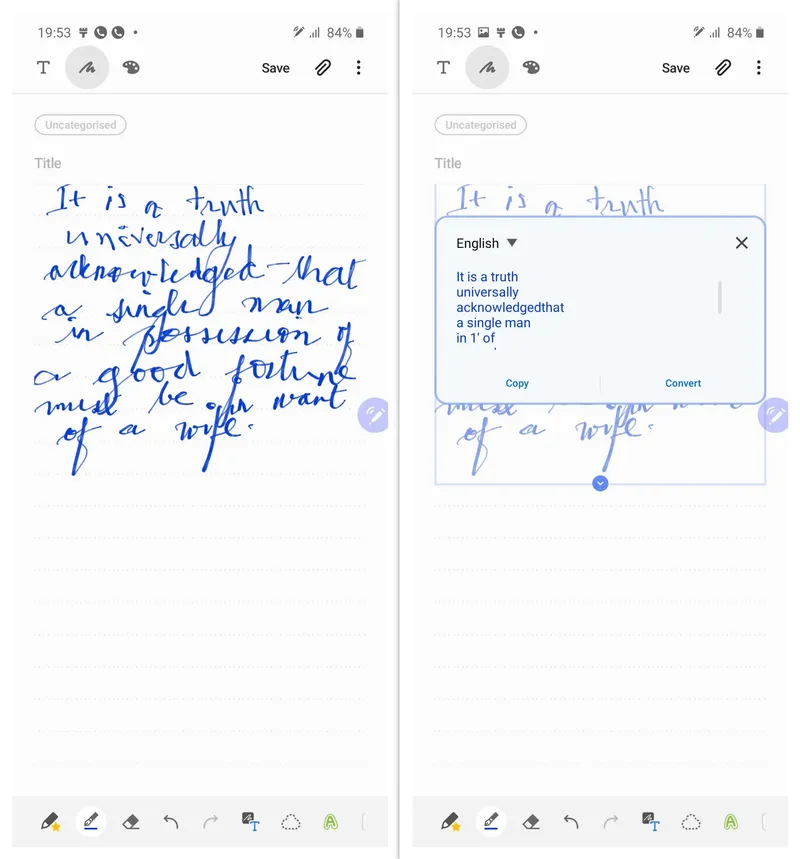 19:53
84%
T
Save
Uncategorised
Title
It is a truth
universally
acknowledged-that
a single man
in possession of
a good fortune
must be in want
of a wife.
T
A
19:53
84%
T
Save
Uncategorised
Title
It is a truth
English
It is a truth
universally
acknowledgedthat
a single man
in 1' of
Copy
Convert
must be in want
of a wife.
T
A